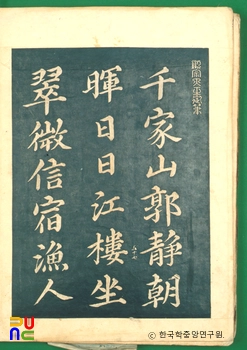 千家山郭靜朝
暉日日江樓坐
翠微信宿漁人
ⓒ한국학중앙연구원